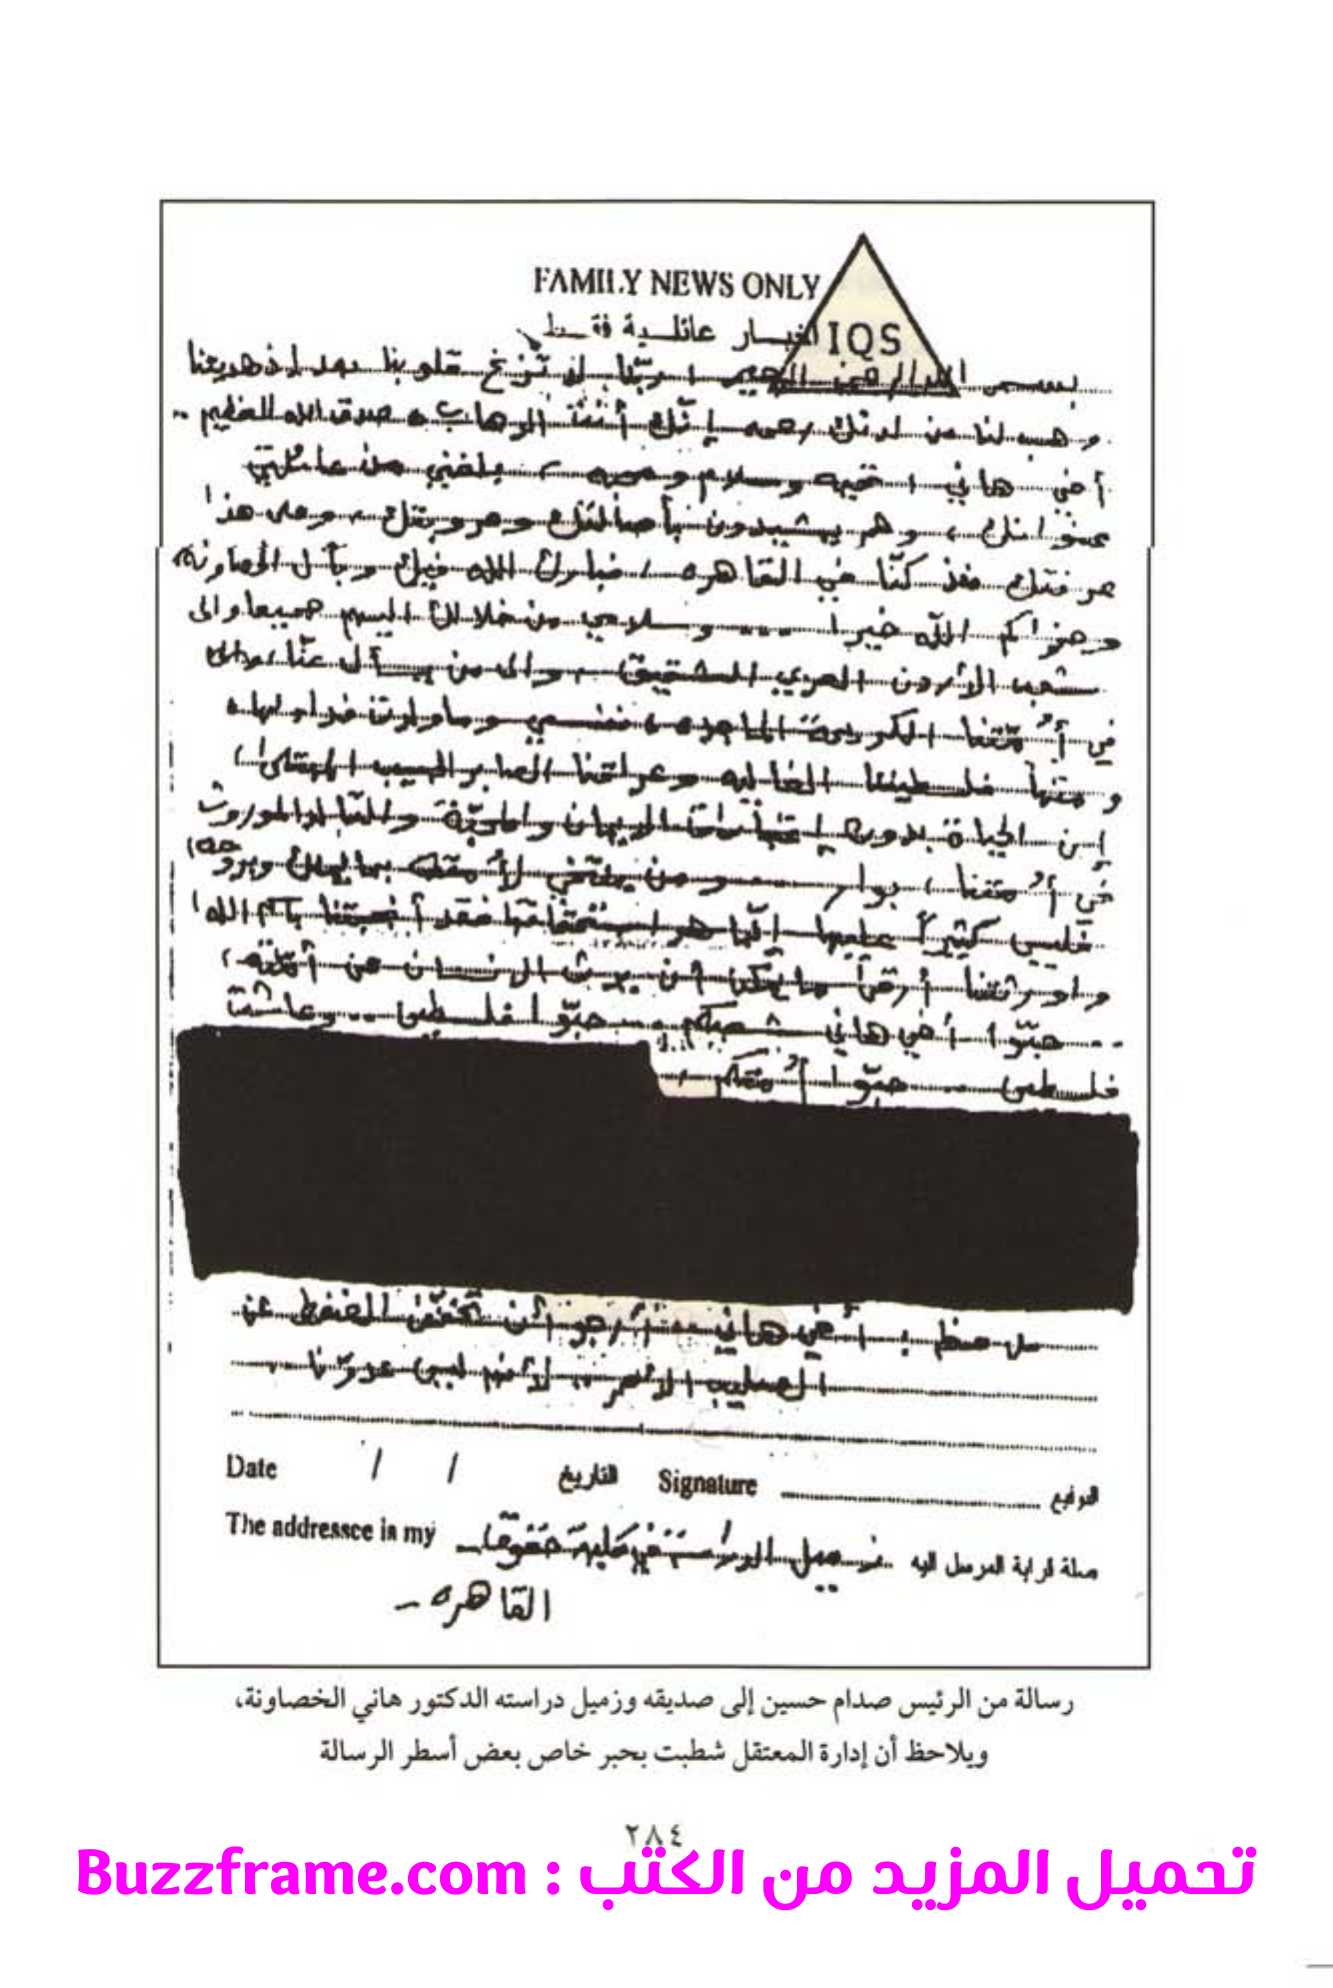 FAMILY NEWS ONLY
IQS
اخبار عائلية فقط
بسم الله الرحمن الرحيم ربّنا لا تزغ قلوبنا بعد إذ هديتنا
وهب لنا من لدنك رحمه إنّك أنت الوهاب صدق الله العظيم ..
أخي هاني ، تحيه وسلام ومحبه ، بلغني من عائلتي
عنوانك ، وهم يشيدون بأصالتك وعروبتك ، وعلى هذا
عرفتك منذ كنّا في القاهره ، فبارك الله فيك وبآل الخصاونه
وجزاكم الله خيرا .... وسلامي من خلالك اليهم جميعا والى
شعب الأردن العربي الشقيق ، والى من يسأل عنّا
في أُمّتنا الكريمة الماجده ، نفسي وما ولدت فداء لها
ومنها فلسطيننا الغاليه وعراقنا الصابر الحبيب
إن الحياة بدون الايمان والمحبّة والموروث
في أُمتنا ، بوار .... ومن لأُمته بما يملك وبروحه
فليس كثيراً عليها إنّما هو استحقاقها فقد أنجبتنا الله
واورثتنا أرقى ما يمكن أن يرث الانسان عن أمته ،
.. حيّوا أخي هاني شعبكم .. حيّوا فلسطين .. وعاشت
فلسطين .. حيّوا أُمتكم
ملاحظه : أخي هاني .. أرجو أن تخفّف الضغط عن
الصليب الأحمر .. لأنهم ليس عدوّنا .
Date / / التاريخ Signature التوقيع
The addressce is my زميل الدراسة في كلية حقوق صلة قرابة المرسل اليه
القاهره -
رسالة من الرئيس صدام حسين إلى صديقه وزميل دراسته الدكتور هاني الخصاونة،
ويلاحظ أن إدارة المعتقل شطبت بحبر خاص بعض أسطر الرسالة
٢٨٤
تحميل المزيد من الكتب : Buzzframe.com